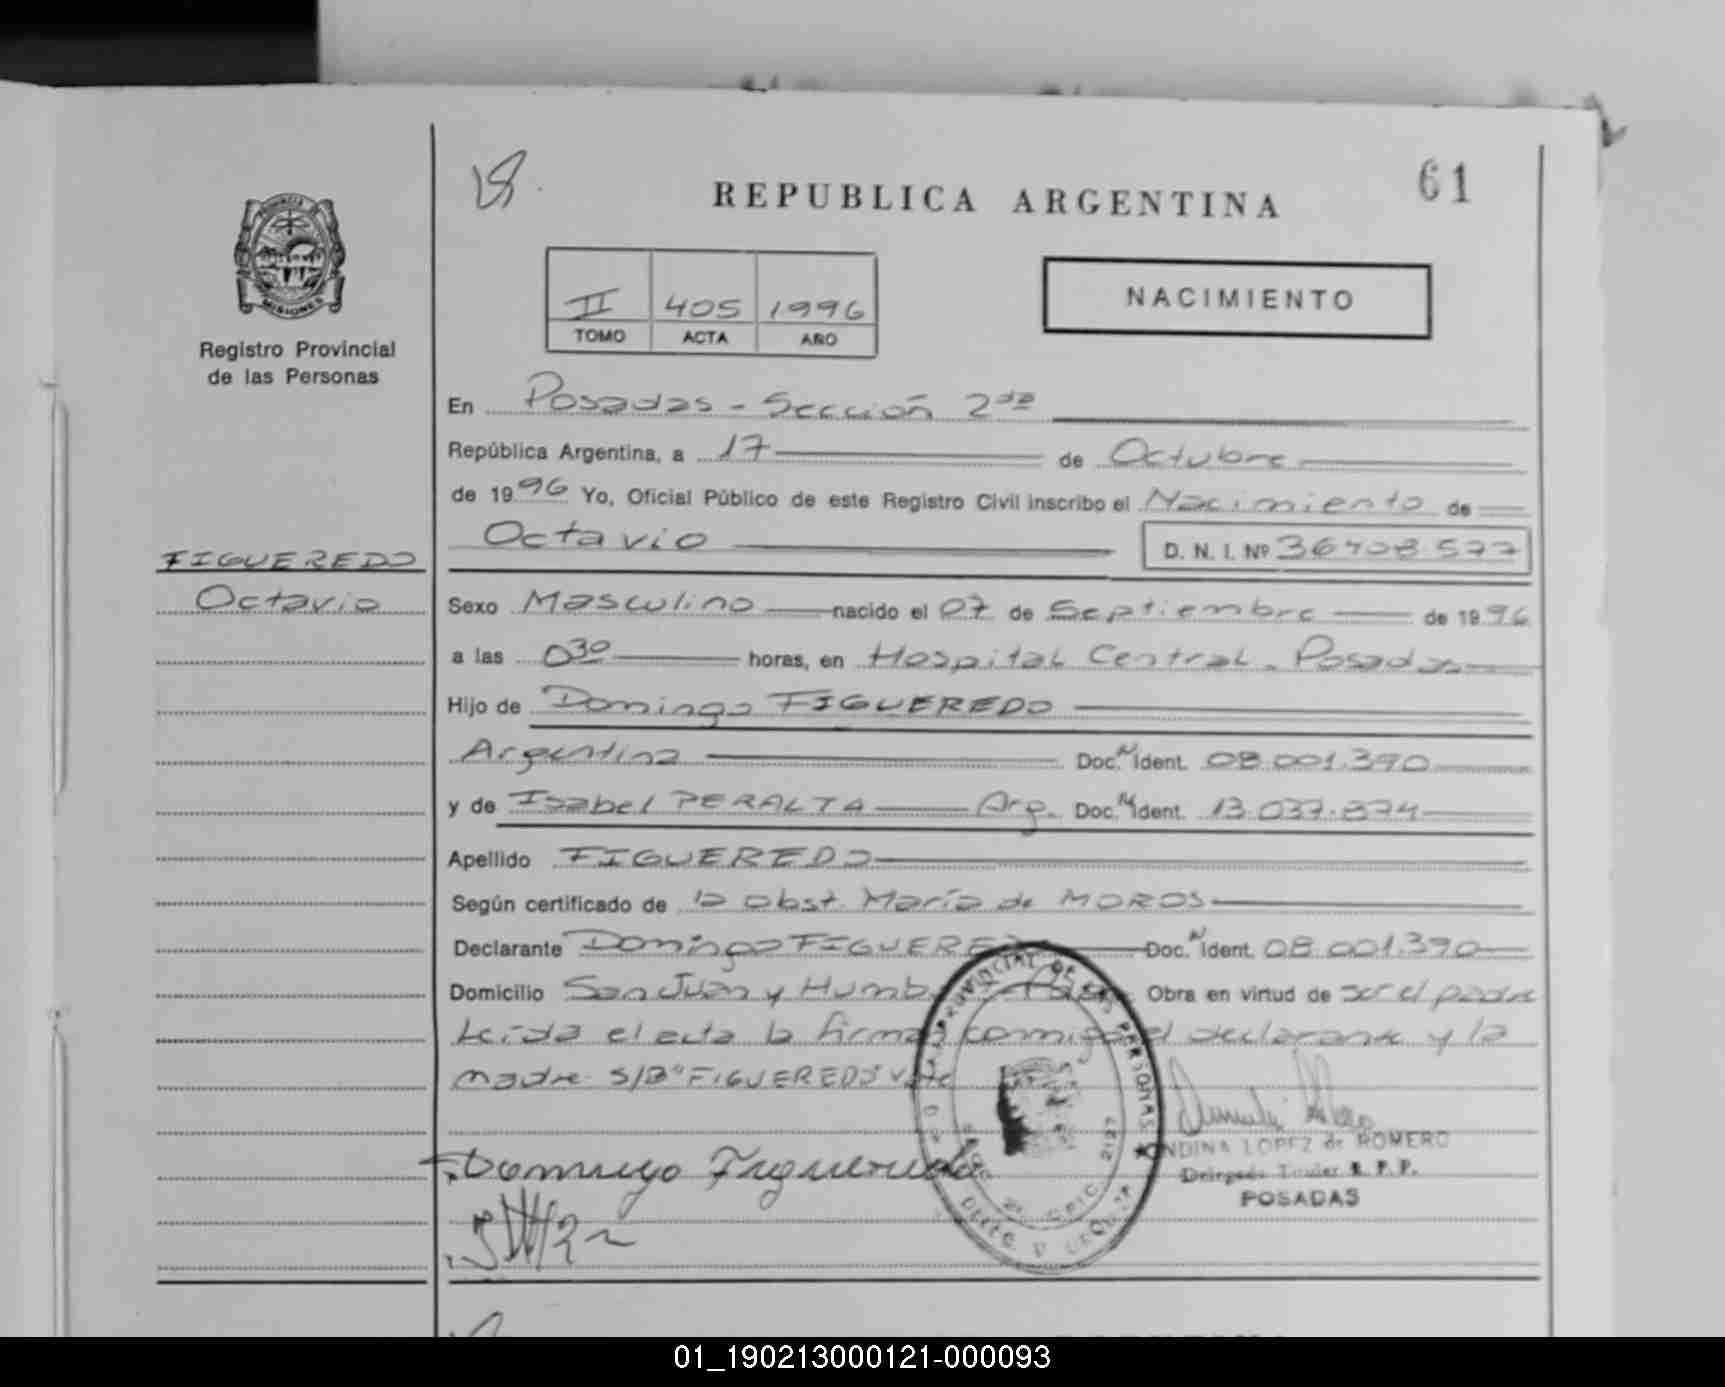 61
REPUBLICA ARGENTINA
PROVINCIA DE
MISIONES
Registro Provincial
de las Personas
II 405 1996
TOMO ACTA AÑO
NACIMIENTO
En Posadas - Sección 2da
República Argentina, a 17 de Octubre
de 1996 Yo, Oficial Público de este Registro Civil inscribo el Nacimiento de
Octavio D. N. I. Nº 36408.577
FIGUEREDO
Octavio
Sexo Masculino nacido el 07 de Septiembre de 1996
a las 030 horas, en Hospital Central - Posadas
Hijo de Domingo FIGUEREDO
Argentina Doc. N Ident. 08.001.390
y de Isabel PERALTA Arg. Doc. N Ident. 13.037.874
Apellido FIGUEREDO
Según certificado de la obst. María de MOROS
Declarante Domingo FIGUEREDO Doc. N Ident. 08.001.390
Domicilio San Juan y Humb Obra en virtud de ser el padre
Leída el acta la firma conmigo el declarante y la
madre S/B "FIGUEREDO" Vale
Domingo Figueredo
ONDINA LOPEZ de ROMERO
Delegada Titular R. P. P.
POSADAS
01_190213000121-000093